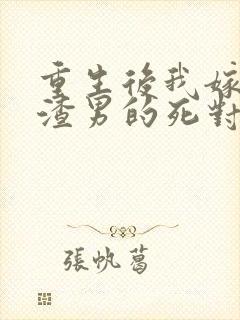 重生後我嫁
渣男的死對
張帆葛